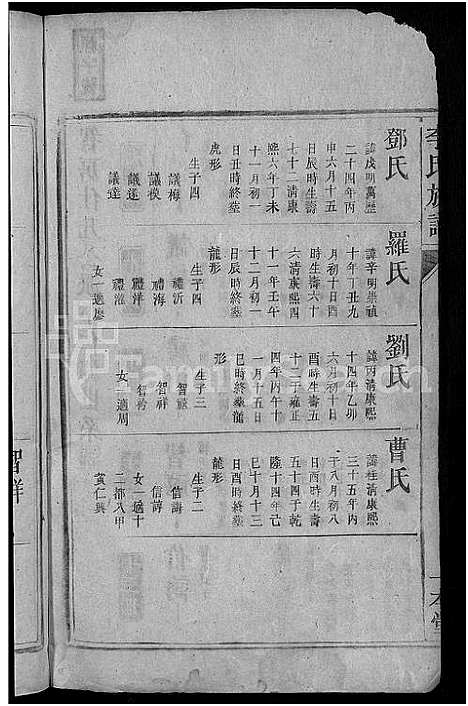 李氏族譜
鄧氏
諱戊明萬歷
二十四年丙
申六月十五
日辰時生壽
七十二清康
熙六年丁未
十一月初一
日丑時終墓
虎形
生子四
議梅
議模
議運
議達
羅氏
諱辛明崇禎
十年丁丑九
月初十日酉
時生壽六十
六清康熙四
十一年壬午
十二月初一
日辰時終墓
龍形
生子四
禮沂
禮海
禮洋
禮淮
女一適廖
劉氏
諱丙清康熙
十四年乙卯
六月初十日
酉時生壽五
十三于雍正
四年丙午十
一月十五日
巳時終墓龍
形
生子三
智祥
女一適周
曹氏
諱桂清康熙
三十五年丙
子八月初八
日酉時生壽
五十四于乾
隆十四年己
巳十月十三
日酉時終墓
龍形
生子二
信譸
信諄
女一適十
二都八甲
黃仁興
一本堂
智祥